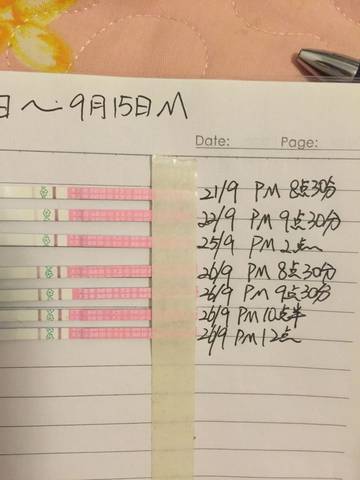 日～9月15日M
Date: Page:
21/9 PM 8点30分
22/9 PM 9点30分
25/9 PM 2点
26/9 PM 8点30分
26/9 PM 9点30分
26/9 PM 10点半
26/9 PM 12点